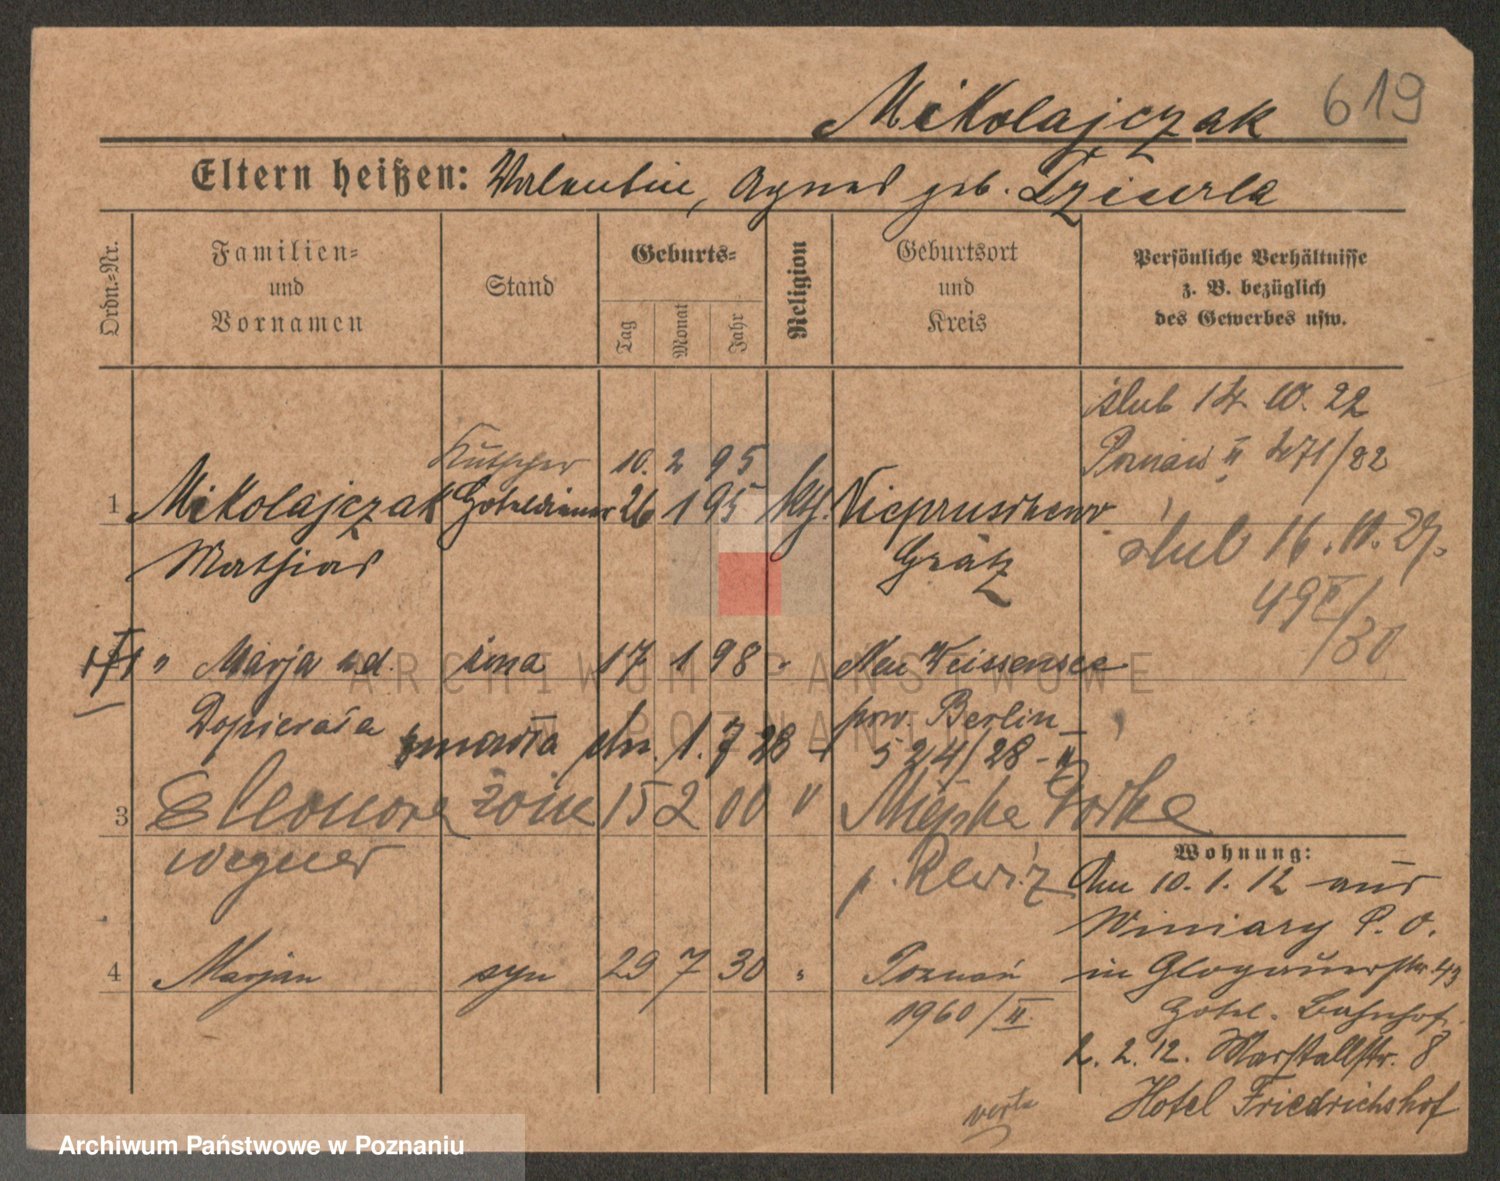 Mikolajczak 619
Eltern heißen: Valentin, Agnes geb. Dziserla
Ordn.-Nr.
Familien-
und
Vornamen
Stand
Geburts-
Tag
Monat
Jahr
Religion
Geburtsort
und
Kreis
Persönliche Verhältnisse
z. B. bezüglich
des Gewerbes usw.
ślub 14 10. 22
Poznań II 471/22
Kutscher 10. 2 95
1 Mikolajczak Hoteldiener 26 1 95 kth. Niepruschewo
Mathias Grätz
ślub 16. 11. 29.
49 /30
" Marja żona 17 1 98 " Neu Weissensee
Dopierała pow. Berlin
zmarła dn. 1. 7 28 524/28 - II
3 Eleonora żona 15 2 00 " Miejska Górka
Wegner
p. Rawicz
Wohnung:
Am 10. 1. 12 aus
Winiary P. O.
4 Marjan syn 29 7 30 " Poznań
in Glogauerstr. 49
1960/II.
Hotel. Bahnhof.
2. 2. 12. Marstallstr. 8
Hotel Friedrichshof
verte
ARCHIWUM PAŃSTWOWE
W POZNANIU
Archiwum Państwowe w Poznaniu